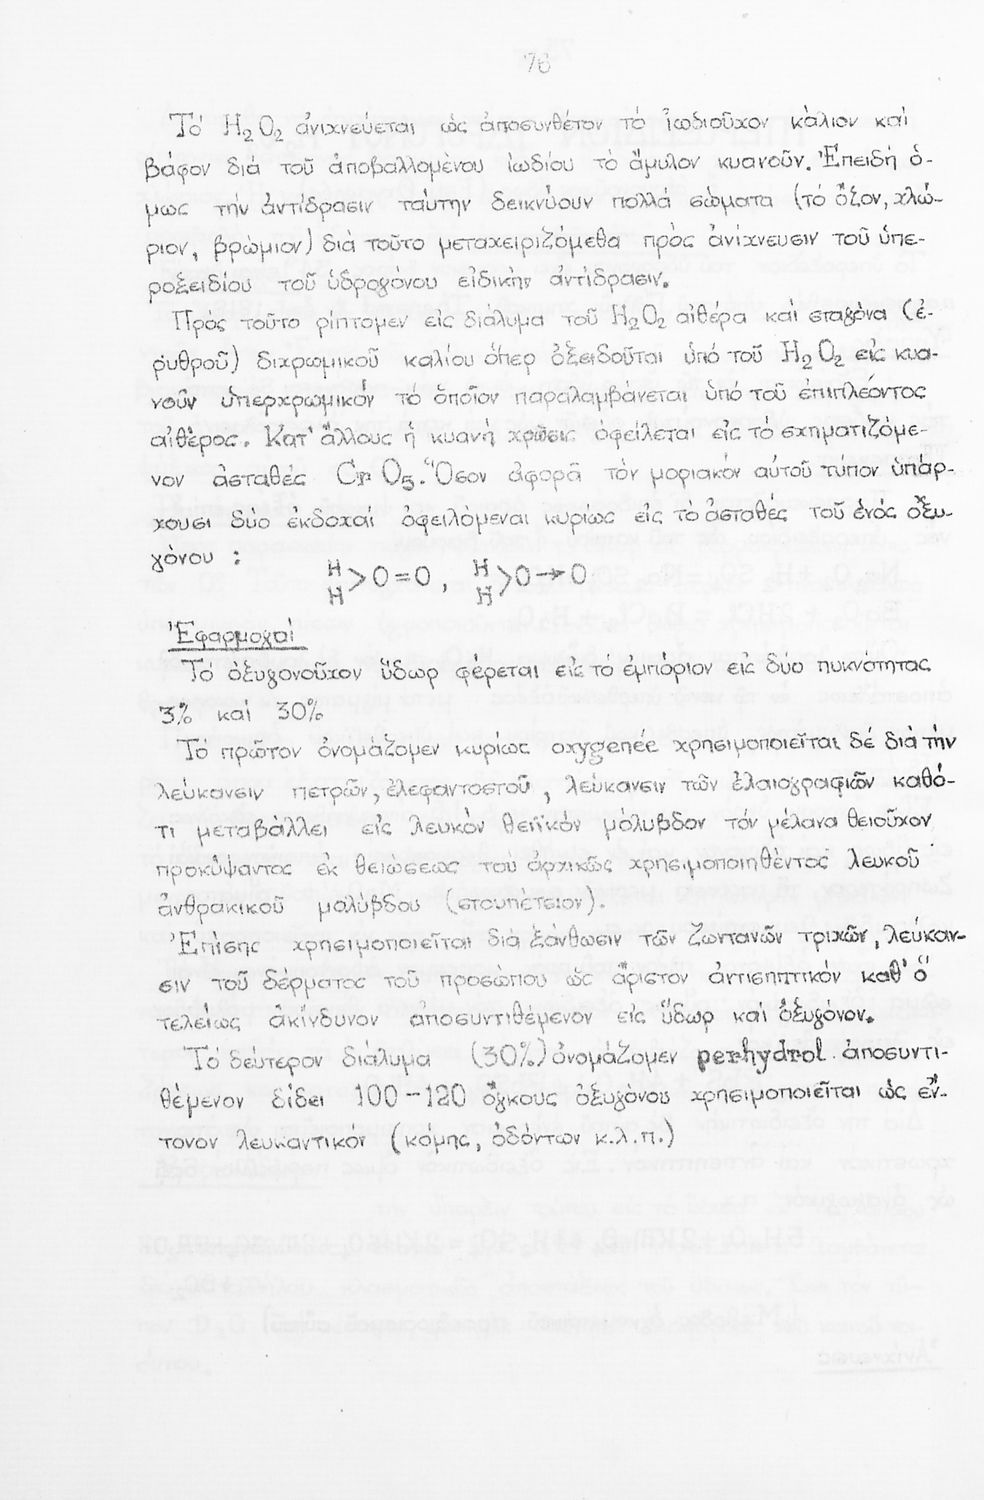 76
Τό H₂O₂ ἀνιχνεύεται ὡς ἀποσυνθέτον τό ἰωδιοῦχον κάλιον καί
βάφον διά τοῦ ἀποβαλλομένου ἰωδίου τό ἄμυλον κυανοῦν. Ἐπειδή ὅ-
μως τήν ἀντίδρασιν ταύτην δεικνύουν πολλά σώματα (τό ὄζον, χλώ-
ριον, βρώμιον) διά τοῦτο μεταχειριζόμεθα πρός ἀνίχνευσιν τοῦ ὑπε-
ροξειδίου τοῦ ὑδρογόνου εἰδικήν ἀντίδρασιν.
Πρός τοῦτο ρίπτομεν εἰς διάλυμα τοῦ H₂O₂ αἰθέρα καί σταγόνα (ἐ-
ρυθροῦ) διχρωμικοῦ καλίου ὅπερ ὀξειδοῦται ὑπό τοῦ H₂O₂ εἰς κυα-
νοῦν ὑπερχρωμικόν τό ὁποῖον παραλαμβάνεται ὑπό τοῦ ἐπιπλέοντος
αἰθέρος. Κατ' ἄλλους ἡ κυανή χρῶσις ὀφείλεται εἰς τό σχηματιζόμε-
νον ἀσταθές Cr O₅. Ὅσον ἀφορᾶ τόν μοριακόν αὐτοῦ τύπον ὑπάρ-
χουσι δύο ἐκδοχαί ὀφειλόμεναι κυρίως εἰς τό ἀσταθές τοῦ ἑνός ὀξυ-
γόνου :
H H >O=O , H H >O→O
Ἐφαρμογαί
Τό ὀξυγονοῦχον ὕδωρ φέρεται εἰς τό ἐμπόριον εἰς δύο πυκνότητας
3% καί 30%
Τό πρῶτον ὀνομάζομεν κυρίως oxygenée χρησιμοποιεῖται δέ διά τήν
λεύκανσιν πετρῶν, ἐλεφαντοστοῦ, λεύκανσιν τῶν ἐλαιογραφιῶν καθό-
τι μεταβάλλει εἰς λευκόν θειϊκόν μόλυβδον τόν μέλανα θειοῦχον
προκύψαντος ἐκ θειώσεως τοῦ ἀρχικῶς χρησιμοποιηθέντος λευκοῦ
ἀνθρακικοῦ μολύβδου (στουπέτσιον).
Ἐπίσης χρησιμοποιεῖται διά ξάνθωσιν τῶν ζωντανῶν τριχῶν, λεύκαν-
σιν τοῦ δέρματος τοῦ προσώπου ὡς ἄριστον ἀντισηπτικόν καθ' ὅ
τελείως ἀκίνδυνον ἀποσυντιθέμενον εἰς ὕδωρ καί ὀξυγόνον.
Τό δεύτερον διάλυμα (30%) ὀνομάζομεν perhydrol ἀποσυντι-
θέμενον δίδει 100-120 ὄγκους ὀξυγόνου χρησιμοποιεῖται ὡς ἔν-
τονον λευκαντικόν (κόμης, ὀδόντων κ.λ.π.)